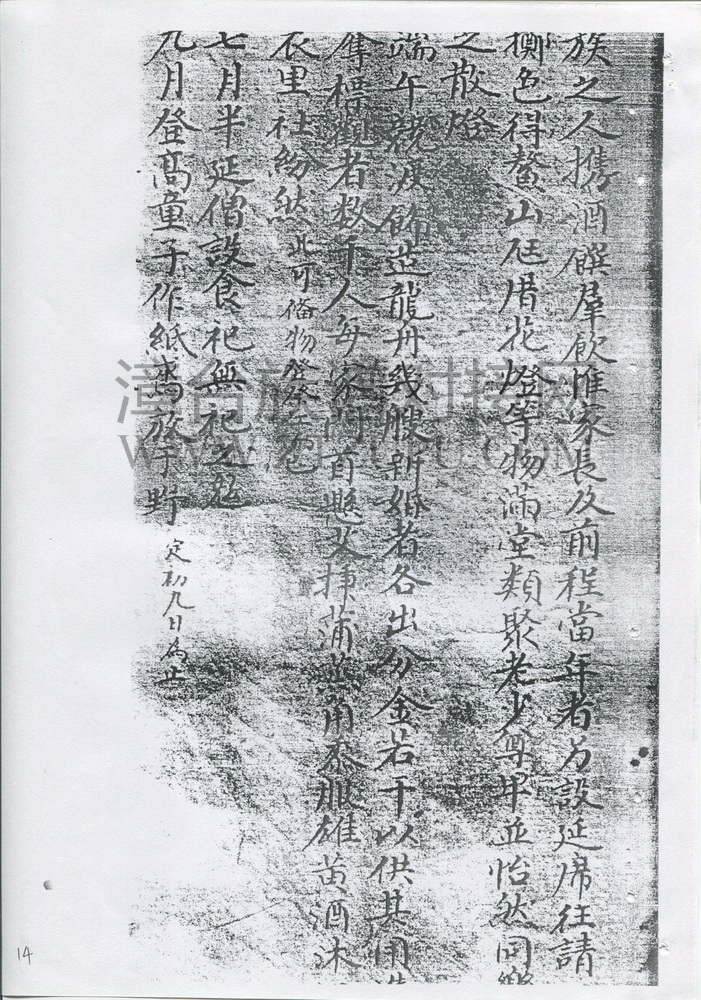 族之人携酒饌羣飲惟家長及前程當年者另設延席往請
擲色得鰲山庀借花燈等物滿堂類聚老少尊卑並怡然同樂
之散燈
端午競渡飾造龍舟幾艘新婚者各出分金若干以供其用
奪標觀者数千人每家門首懸艾揷蒲煎角黍服雄黃酒沐
衣里社紛然 此可俻物
七月半延僧設食祀無祀之
九月登高童子作紙鳶放于野 定初九日為止
14